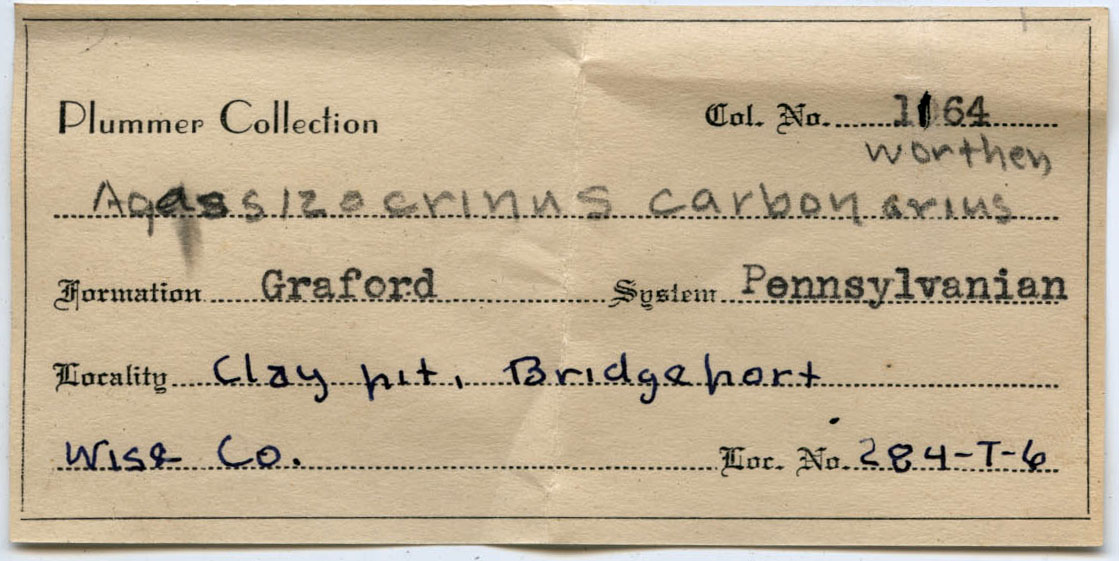 Plummer Collection Col. No. 1164
Worthen
Agassizocrinus carbonarius
Formation Graford System Pennsylvanian
Locality Clay pit, Bridgeport
Wise Co. Loc. No. 284-T-6